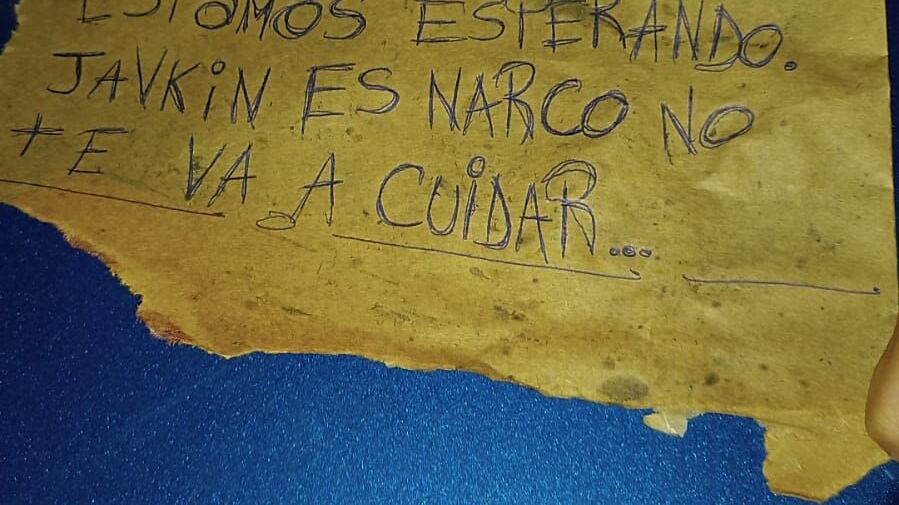 ESTAMOS ESPERANDO.
JAVKiN ES NARCO NO
TE VA A CUiDAR...